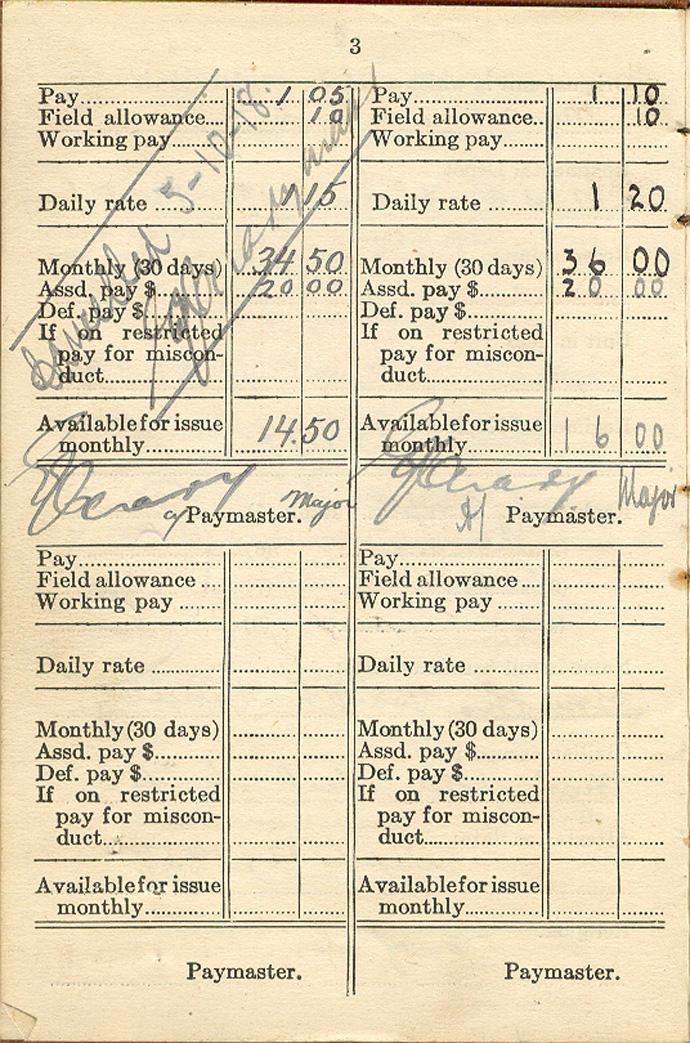 3
Pay.................. 1 05
Field allowance.... 10
Working pay........
Daily rate ........... 1 15
Monthly (30 days) 34 50
Assd. pay $........... 20 00
Def. pay $............
If on restricted
pay for miscon-
duct..................
Available for issue
monthly............ 14.50
Cancelled 3-10-18.
Paymaster. Major
Pay.................. 1 10
Field allowance.. 10
Working pay........
Daily rate ........... 1 20
Monthly (30 days) 36 00
Assd. pay $........... 20 00
Def. pay $............
If on restricted
pay for miscon-
duct..................
Available for issue
monthly............ 16 00
Paymaster. Major
Pay..................
Field allowance ....
Working pay ........
Daily rate ...........
Monthly (30 days)
Assd. pay $...........
Def. pay $............
If on restricted
pay for miscon-
duct..................
Available for issue
monthly............
Paymaster.
Pay..................
Field allowance ....
Working pay ........
Daily rate ...........
Monthly (30 days)
Assd. pay $...........
Def. pay $............
If on restricted
pay for miscon-
duct..................
Available for issue
monthly............
Paymaster.